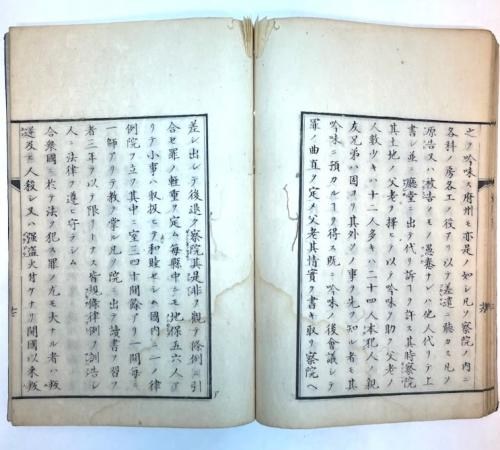 之ヲ吟味ス府州モ亦是ノ如シ凡ソ察院ノ内ニ
各科ノ房各工ノ役アリ以テ差遣ニ聽カス凡ソ
源告又ハ被告クモノ愚蠢ナレハ他人代リテ上
書シ並ニ廳堂ニ出テ代リ訴ヿヲ許ス其時察院
其土地ノ父老ヲ擇ミテ以テ吟味ヲ助ク父老ノ
人數少キハ十二人多キハ二十四人本犯人ノ親
友兄弟ハ固ヨリ其外ソノ事ヲ先ツ知ル者モ其
吟味ニ預カルヿヲ得ス既ニ吟味ノ後會議シテ
罪ノ曲直ヲ定メ父老其情實ヲ書キ取リ察院ヘ
差シ出シテ後退ク察院其是非ヲ觀テ條例ニ引
合セ罪ノ輕重ヲ定ム毎縣中ニモ地保五六人ア
リテ小事ハ取扱モテ和睦セシム國内ニ一ノ律
例院ヲ立ツ其中ニ室三四十間餘アリ一間毎ニ
一師アリテ教ヲ掌シ凡ソ院ニ出テ讀書ヲ習フ
者三年ヲ以テ限リトナス皆規條律例ヲ訓誥シ
人ニ法律ヲ遵ヒ守ラシム
合衆國ニ於テ法ヲ犯ス罪ノ尤モ大ナル者ハ叛
逆及ヒ人殺シ又ハ強盗火付ケナリ開國以来叛